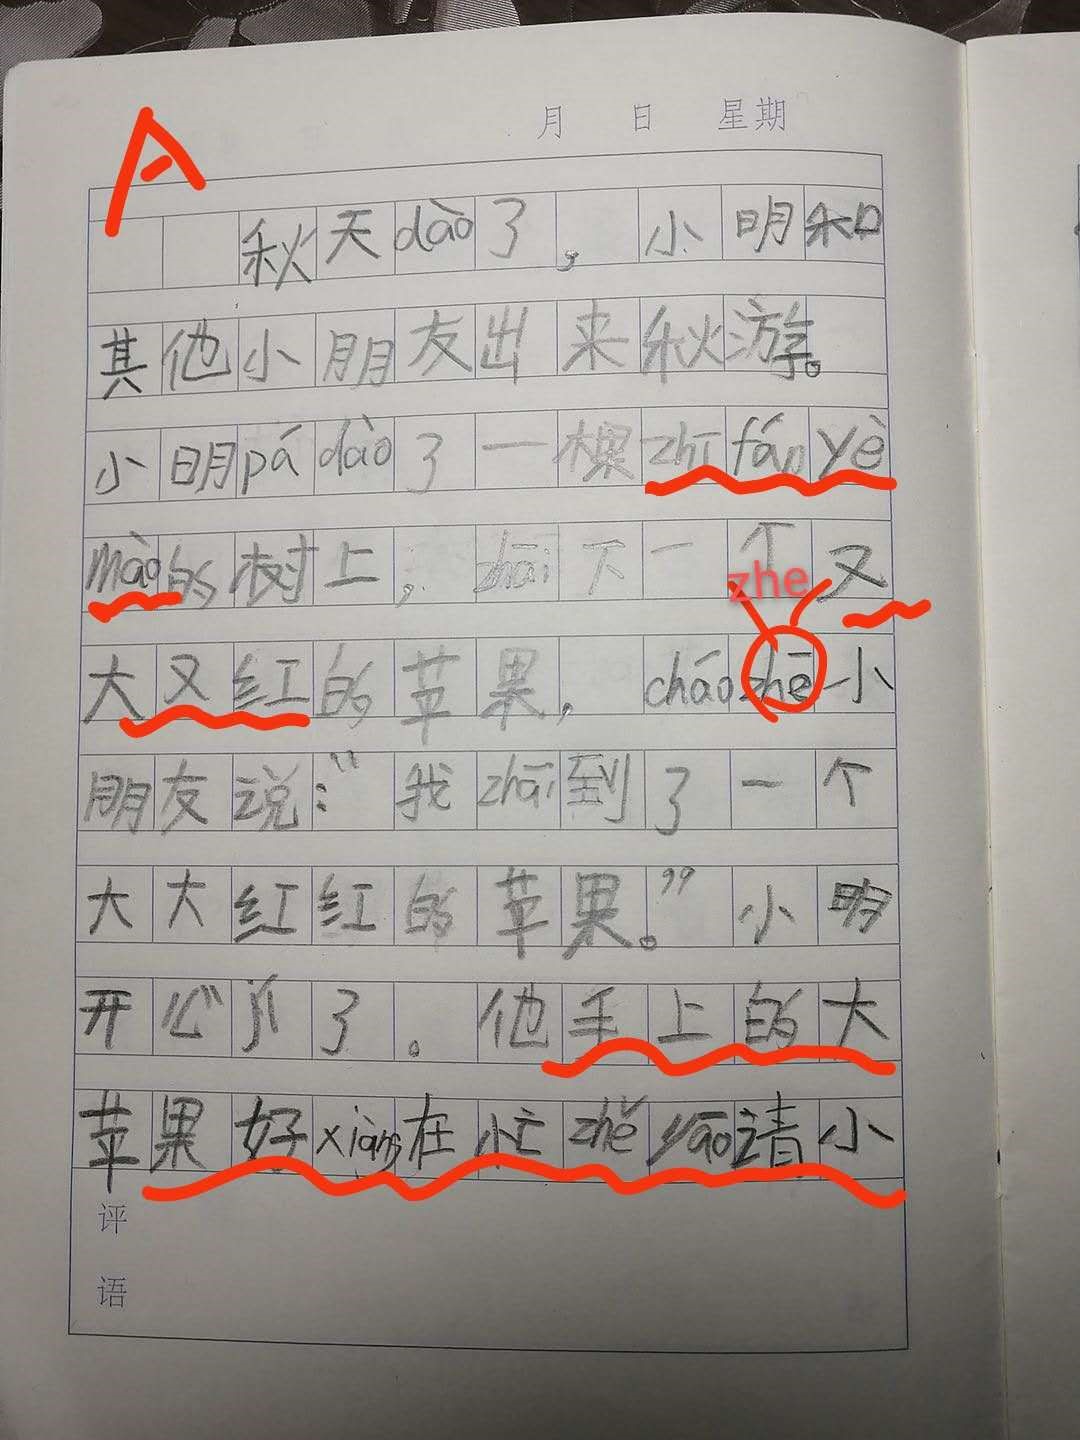 月 日 星期
A
秋天dào了，小明和
其他小朋友出来秋游。
小明pá dào了一棵zhī fáo yè
mào的树上，zhāi下一个又
zhe
大又红的苹果，cháo zhē小
朋友说：“我zhāi到了一个
大大红红的苹果。”小明
开心jí了。他手上的大
苹果好xiàng在忙zhě yāo请小
评
语